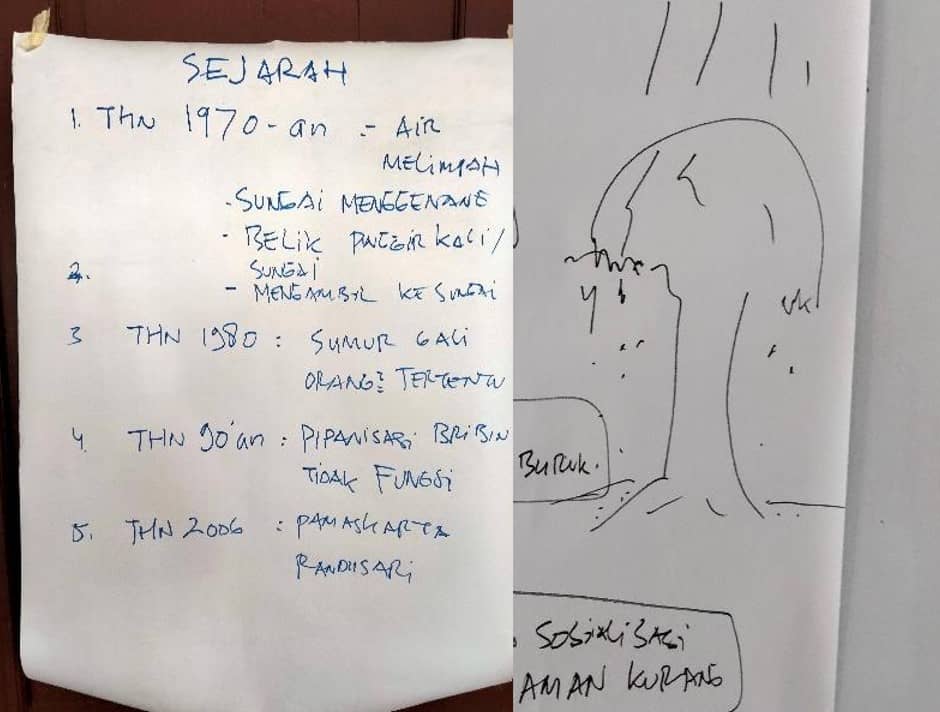 SEJARAH
1. THN 1970-an :- AIR
MELIMPAH
- SUNGAI MENGGENANG
- BELIK PINGGIR KALI/
SUNGAI
2.
- MENGAMBIL KE SUNGAI
3 THN 1980 : SUMUR GALI
ORANG² TERTENTU
4. THN 90'an : PIPANISASI BRIBIN
TIDAK FUNGSI
5. THN 2006 : PAMASKARTA
RANDUSARI
BURUK.
SOSIALISASI
AMAN KURANG